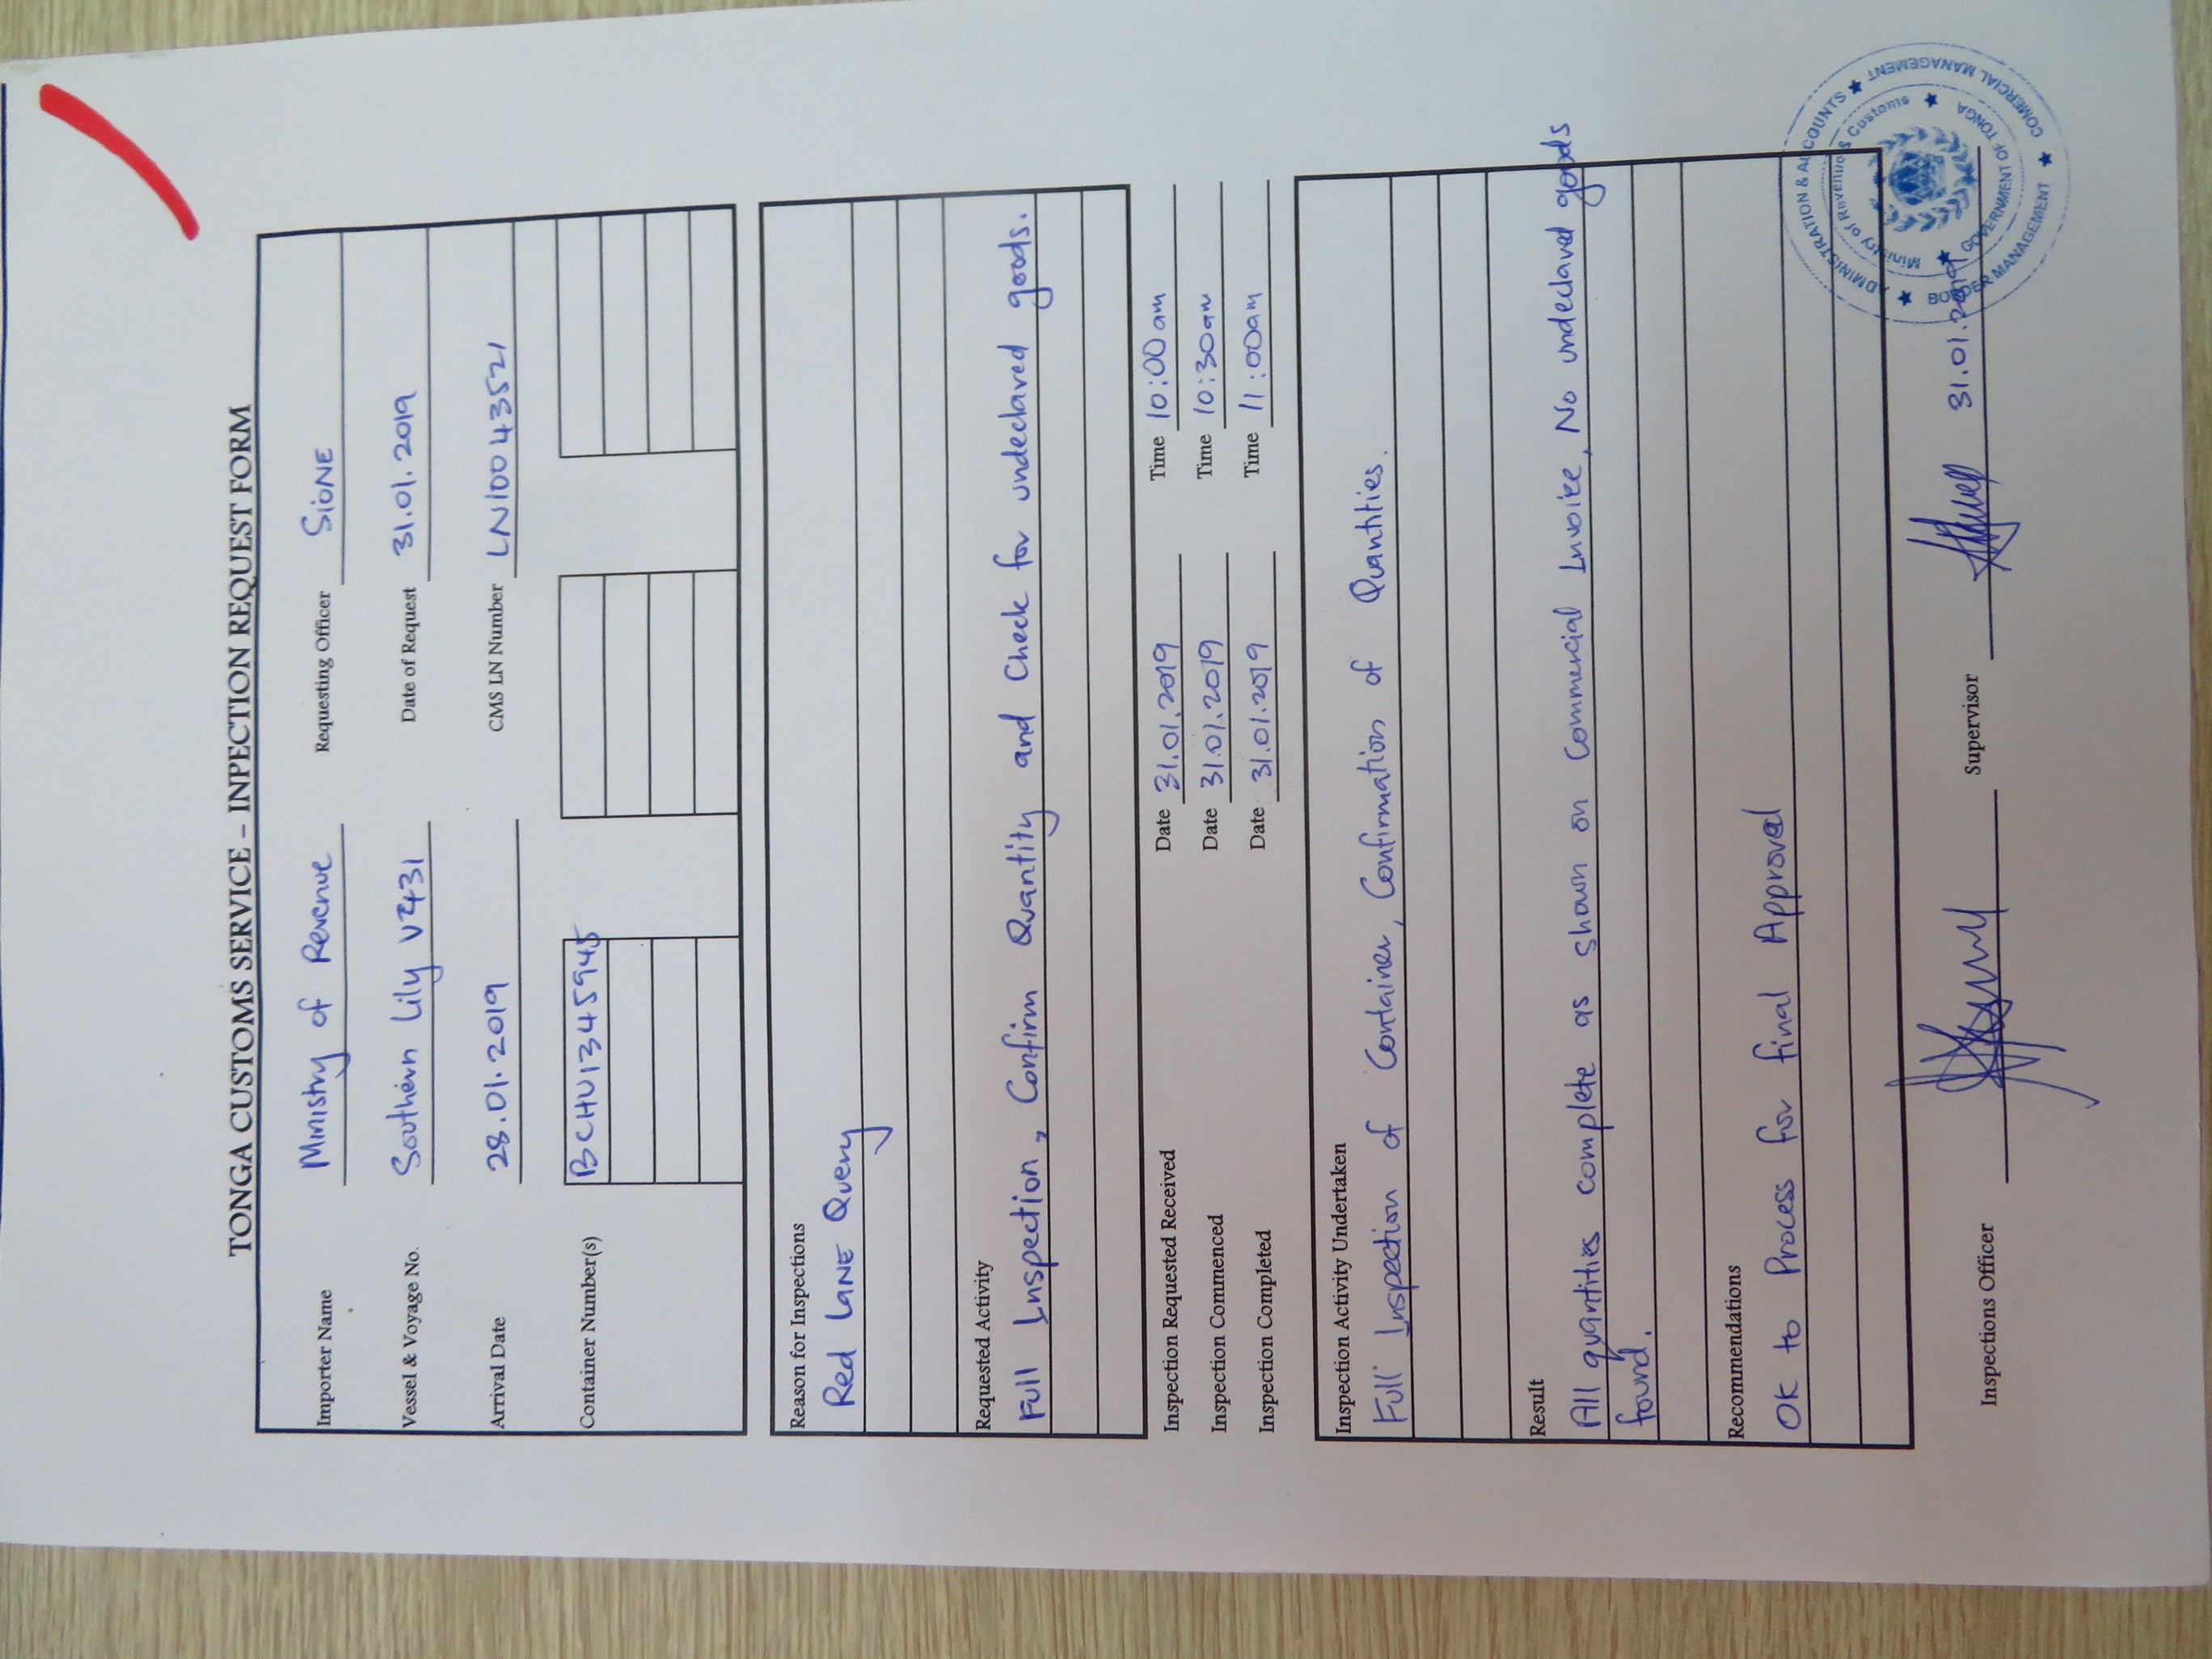 TONGA CUSTOMS SERVICE – INPECTION REQUEST FORM
Importer Name Ministry of Revenue Requesting Officer SiONE
Vessel & Voyage No. Southern Lily V2431 Date of Request 31.01.2019
Arrival Date 28.01.2019 CMS LN Number LN10043521
Container Number(s) BCHU1345945
Reason for Inspections
Red LANE Query
Requested Activity
Full Inspection, Confirm Quantity and Check for undeclared goods.
Inspection Requested Received Date 31.01.2019 Time 10:00am
Inspection Commenced Date 31.01.2019 Time 10:30am
Inspection Completed Date 31.01.2019 Time 11:00am
Inspection Activity Undertaken
Full Inspection of Container, Confirmation of Quantities.
Result
All quantities complete as shown on Commercial Invoice, No undeclared goods
found.
Recommendations
OK to Process for final Approval
Inspections Officer Supervisor 31.01.2019
ADMINISTRATION & ACCOUNTS ★ COMERCIAL MANAGEMENT ★ BORDER MANAGEMENT ★
Ministry of Revenue & Customs ★ GOVERNMENT OF TONGA ★